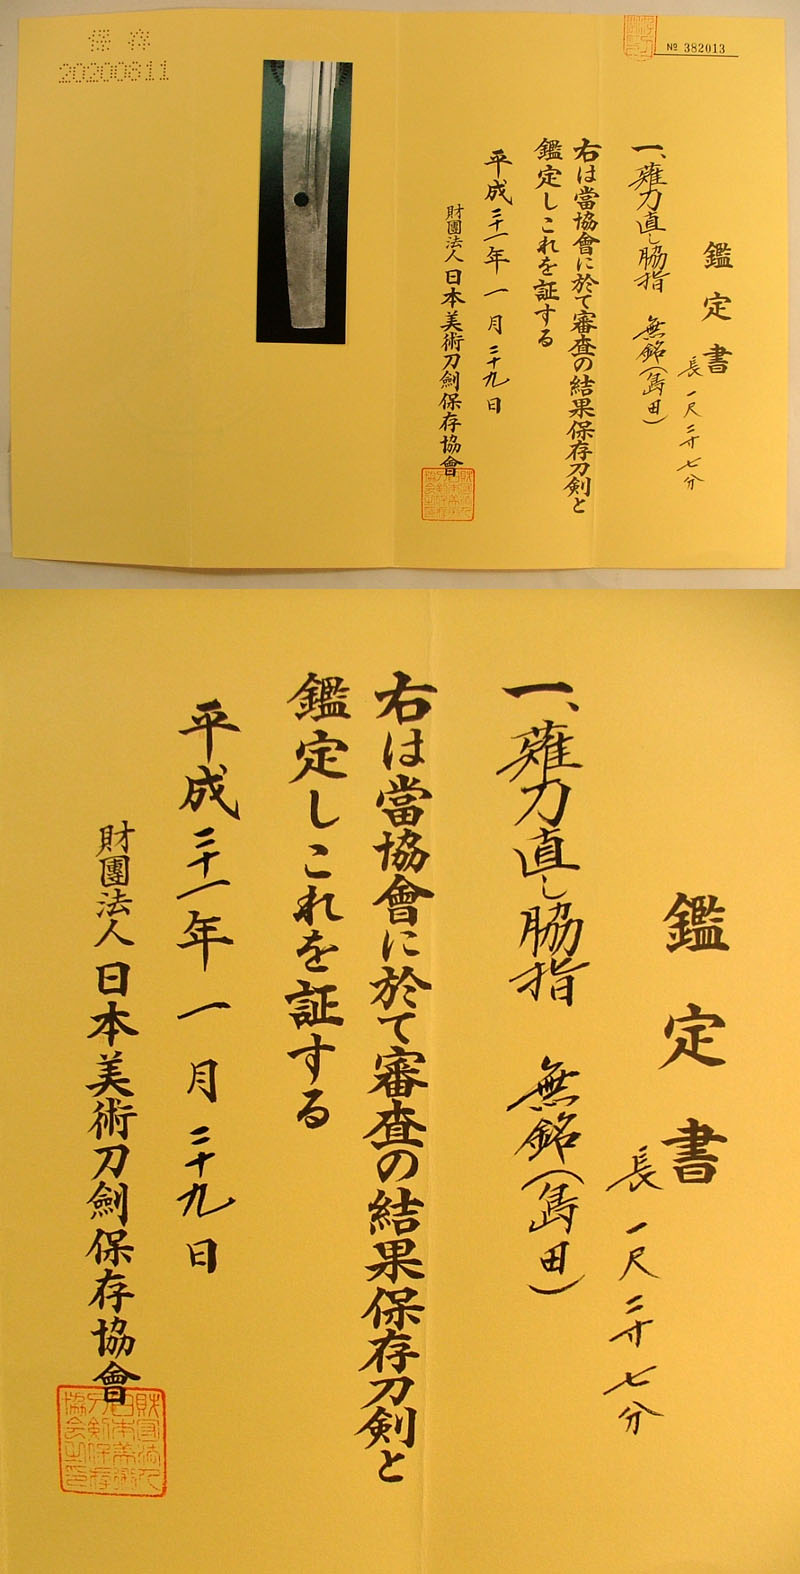 保存
20200611
№ 382013
鑑定書
長一尺二寸七分
一、薙刀直し脇指 無銘(島田)
右は當協會に於て審査の結果保存刀剣と
鑑定しこれを証する
平成三十一年一月二十九日
財團法人日本美術刀劍保存協會
鑑定書
長一尺二寸七分
一、薙刀直し脇指 無銘(島田)
右は當協會に於て審査の結果保存刀剣と
鑑定しこれを証する
平成三十一年一月二十九日
財團法人日本美術刀劍保存協會